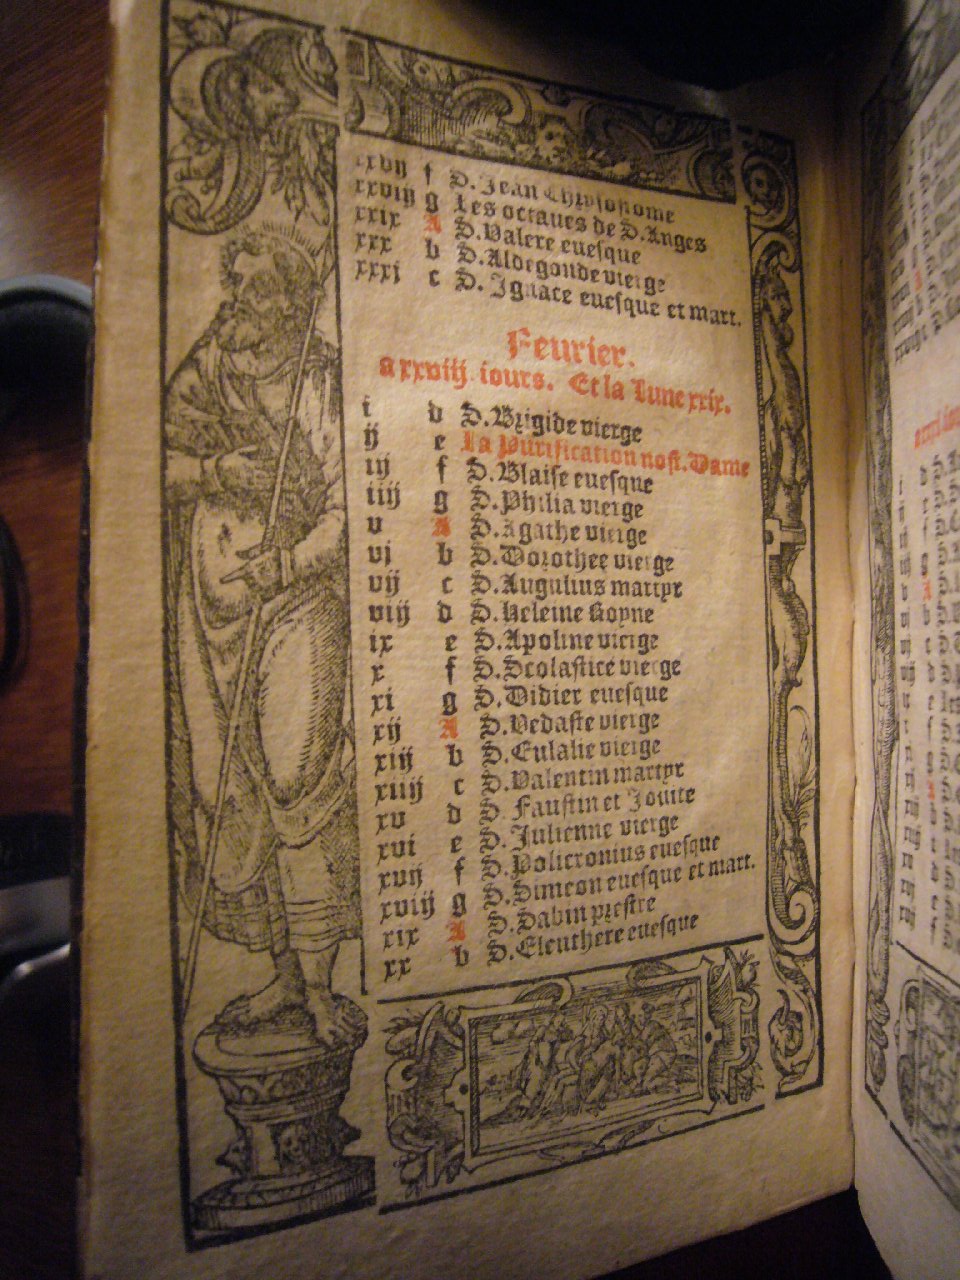 xxvij f S. Jean Chrysostome
xxviij g Les octaues de S. Anges
xxix A S. Valere euesque
xxx b S. Aldegonde vierge
xxxi c S. Ignace euesque et mart.
Feurier.
a xxviij iours. Et la Lune xxix.
i d S. Brigide vierge
ij e La Purification nost. Dame
iij f S. Blaise euesque
iiij g S. Philia vierge
v A S. Agathe vierge
vi b S. Dorothee vierge
vij c S. Augulius martyr
viij d S. Heleine Royne
ix e S. Apoline vierge
x f S. Scolastice vierge
xi g S. Didier euesque
xij A S. Vedaste vierge
xiij b S. Eulalie vierge
xiiij c S. Valentin martyr
xv d S. Faustin et Jouite
xvi e S. Julienne vierge
xvij f S. Policronius euesque
xviij g S. Simeon euesque et mart.
xix A S. Sabin prestre
xx b S. Eleuthere euesque